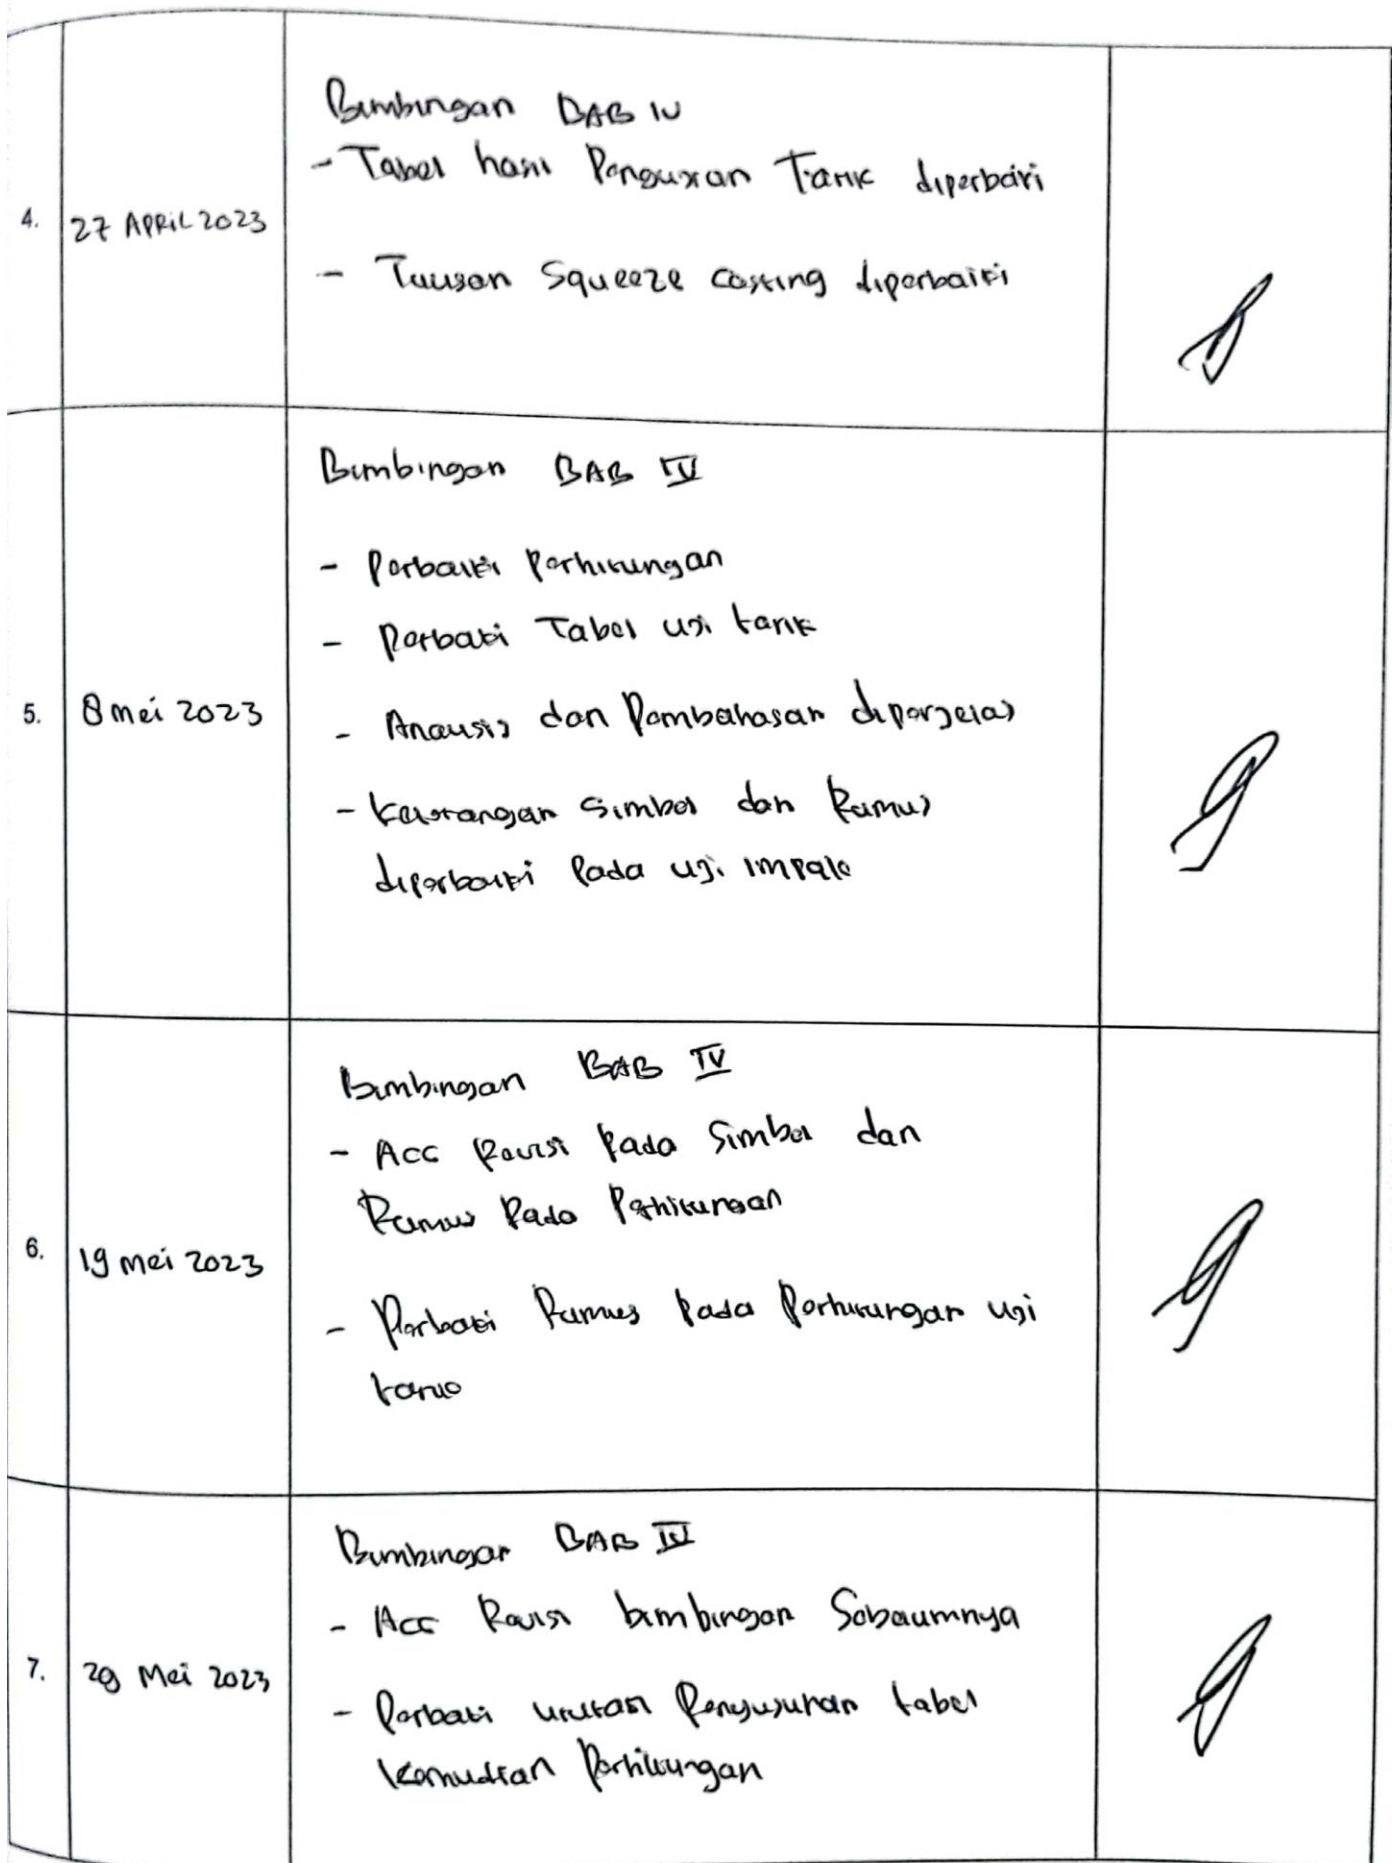 Bimbingan BAB IV
- Tabel hasil Pengujian Tarik diperbaiki
4. 27 APRIL 2023
- Tulisan Squeeze Casting diperbaiki
Bimbingan BAB IV
- Perbaiki Perhitungan
- Perbaiki Tabel uji tarik
5. 8 mei 2023
- Analisis dan Pembahasan diperjelas
- Keterangan Simbol dan Rumus
diperbaiki Pada uji impak
Bimbingan BAB IV
- Acc Revisi Pada Simbol dan
Rumus Pada Perhitungan
6. 19 mei 2023
- Perbaiki Rumus Pada Perhitungan uji
tarik
Bimbingan BAB IV
- Acc Revisi bimbingan Sebelumnya
7. 29 Mei 2023
- Perbaiki urutan Penyusunan tabel
Kemudian Perhitungan